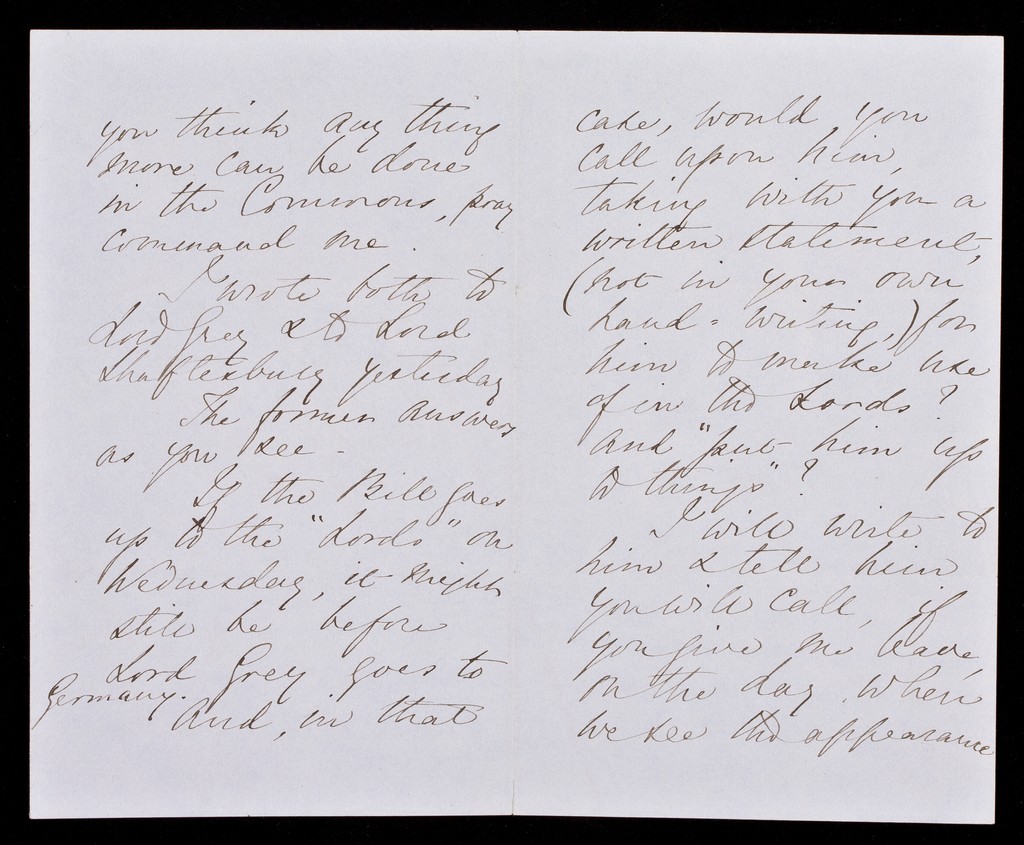 you think any thing
more can be done
in the Commons, pray
command me.
I wrote both to
Lord Grey & to Lord
Shaftesbury yesterday
The former answers
as you see -
If the Bill goes
up to the "Lords" on
Wednesday, it might
still be before
Lord Grey goes to
Germany.
And, in that
case, would you
call upon him,
taking with you a
written statement,
(not in your own
hand-writing,) for
him to make use
of in the Lords?
and "put him up
to things"?
I will write to
him & tell him
you will call, if
you give me leave,
on the day when
we see the appearance